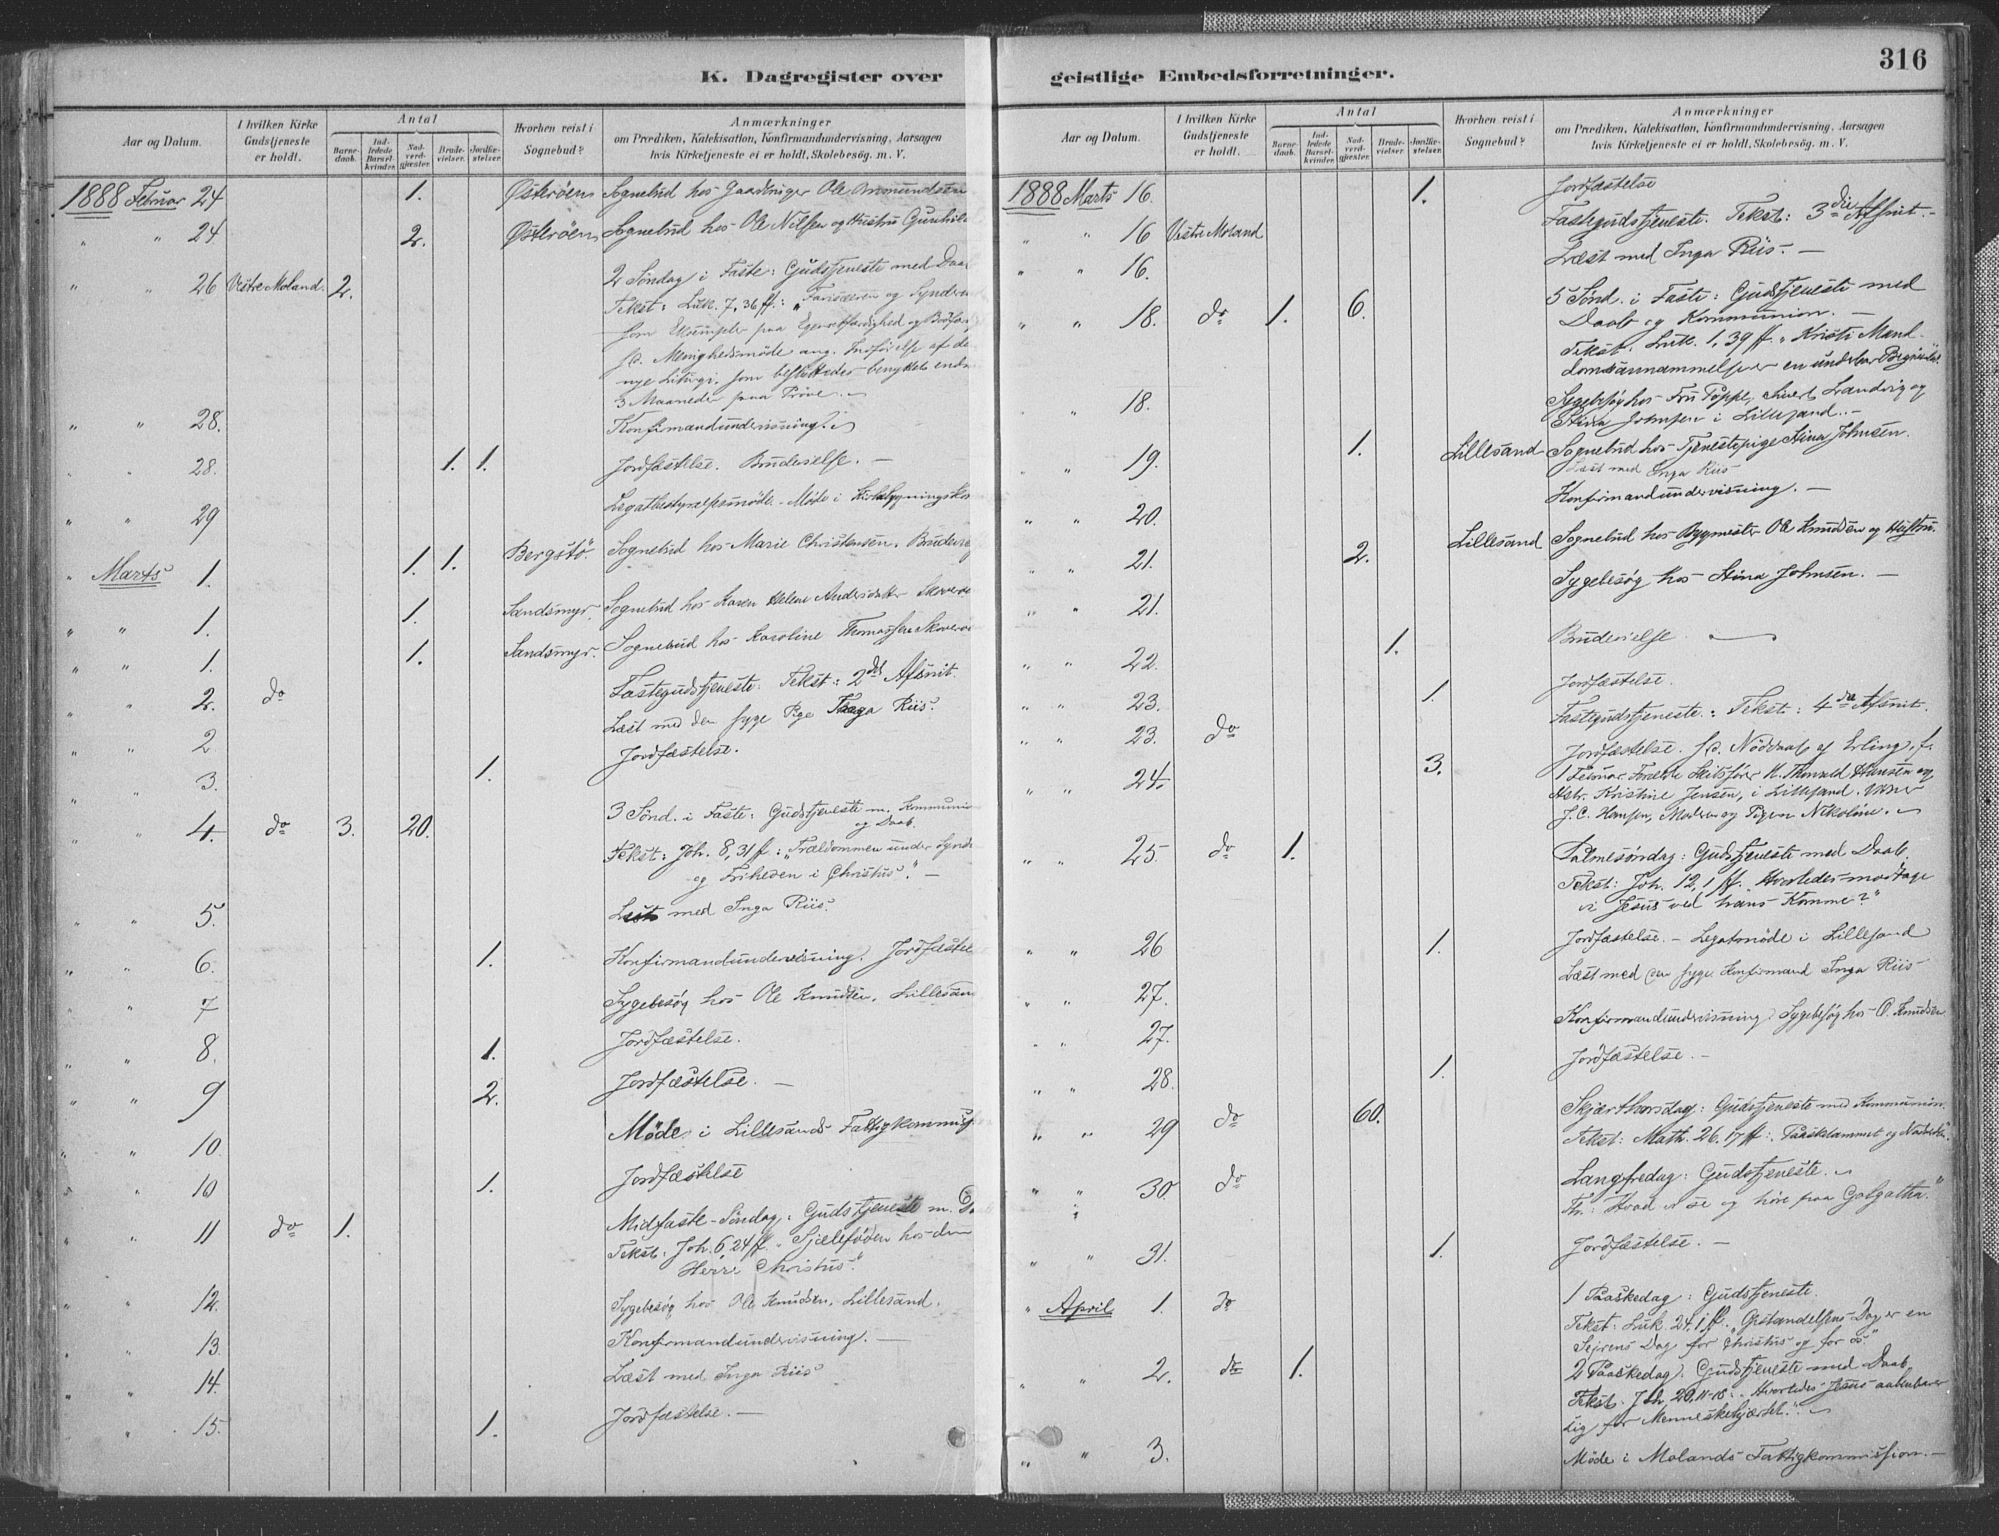 K. Dagregister over
Aar og Datum.
I hvilken Kirke
Gudstjeneste
er holdt.
Antal
Barne-
daab.
Ind-
ledede
Barsel-
kvinder.
Nad-
verd-
gjester.
Brude-
vielser.
Jordfæ-
stelser.
Hvorhen reist i
Sognebud?
Anmærkninger
om Prædiken, Katekisation, Konfirmandundervisning, Aarsagen
hvis Kirketjeneste ei er holdt, Skolebesøg. m. V.
1888 Februar 24 1. Østerøen Sognebud hos Gaardbruger Ole
" " 24 2. Østerøen Sognebud hos Ole Nilsen og Hustru
" " 26 Vestre Moland. 2. 2 Søndag i Faste: Gudstjeneste med
Tekst: Luk. 7,36 ff.: "Farisæeren og
som Exempler paa og
p. Menighedsmøde ang. Indførelse af
nye Liturgi, som besluttedes benyttet
3 Maaneder paa Prøve.
" " 28. Konfirmandundervisning.
" " 28. 1. 1. Jordfæstelse. Brudevielse. —
" " 29 Legatbestyrelsesmøde. Møde i
" Marts 1. 1. 1. Bergstø. Sognebud hos Marie Christensen.
" " 1. 1. Sandsmyr. Sognebud hos Karen Helene
" " 1. 1. Sandsmyr. Sognebud hos Karoline
" " 2. do Fastegudstjeneste: Tekst: 2det Afsnit.
" " 2 Læst med den syge Pige Inga Riis.
" " 3. 1. Jordfæstelse.
" " 4. do 3. 20. 3 Sønd. i Faste: Gudstjeneste m.
og Daab.
Tekst: Joh. 8,31 ff: "Trældommen under
og Friheden i Christus". —
" " 5. Læst med Inga Riis.
" " 6. 1. Konfirmandundervisning.
" " 7 Sygebesøg hos Ole Knudsen,
" " 8. 1. Jordfæstelse.
" " 9 2. Jordfæstelse. —
" " 10 Møde i Lillesands
" " 10 1. Jordfæstelse
" " 11 do 1. Midfaste-Søndag: Gudstjeneste m.
Tekst: Joh. 6,24 ff. "Sjæleføden hos den
Herre Christus."
" " 12. Sygebesøg hos Ole Knudsen, Lillesand.
" " 13. Konfirmandundervisning. —
" " 14. Læst med Inga Riis
" " 15. 1. Jordfæstelse. —
geistlige Embedsforretninger.
316
Aar og Datum.
I hvilken Kirke
Gudstjeneste
er holdt.
Antal
Barne-
daab.
Ind-
ledede
Barsel-
kvinder.
Nad-
verd-
gjester.
Brude-
vielser.
Jordfæ-
stelser.
Hvorhen reist i
Sognebud?
Anmærkninger
om Prædiken, Katekisation, Konfirmandundervisning, Aarsagen
hvis Kirketjeneste ei er holdt, Skolebesøg. m. V.
1888 Marts 16. 1. Jordfæstelse
" " 16 Vestre Moland Fastegudstjeneste. Tekst: 3die Afsnit. —
" " 16. Læst med Inga Riis. —
" " 18. do 1. 6. 5 Sønd. i Faste: Gudstjeneste med
Daab og Kommunion. —
Tekst: Luk. 1,39 ff. "Kristi
er en underbar
" 18. Sygebesøg hos Fru Poppe, Landvig og
Stina Johnsen i Lillesand. —
" " 19. 1. Lillesand Sognebud hos Tjenestepige Stina Johnsen.
Læst med Inga Riis
" " 20. Konfirmandundervisning. —
" " 21. 2. Lillesand Sognebud hos Bygmester Ole Knudsen og Hustru.
" " 21. Sygebesøg hos Stina Johnsen. —
" " 22. 1. Brudevielse.
" " 23. 1. Jordfæstelse.
" " 23. do Fastegudstjeneste: Tekst: 4de Afsnit.
" " 24. 3. Jordfæstelse. p. Nøddaab af Erling, f.
1 Februar Thorvald Hansen og
Hstr. Kristine Jensen, i Lillesand.
J. C. Hansen, Moderen og Pigen Nikoline.
" " 25 do 1. Palmesøndag: Gudstjeneste med Daab.
Tekst: Joh. 12,1 ff. "Hvorledes modtage
vi Jesus ved hans Komme?"
" " 26 1. Jordfæstelse. — Legatmøde i Lillesand
" " 27. Læst med den syge Konfirmand Inga Riis
" " 27. Konfirmandundervisning. Sygebesøg hos O. Knudsen
" " 28. 1. Jordfæstelse. —
" " 29 do 60. Skjærthorsdag: Gudstjeneste med Kommunion.
Tekst: Math. 26.17 ff: Paaskelammet og
" " 30. do Langfredag: Gudstjeneste.
Th: Hvad vi se og høre paa Golgatha."
" " 31. 1. Jordfæstelse. —
" April 1. do 1 Paaskedag: Gudstjeneste.
Tekst: Luk. 24,1 ff. "Opstandelsens Dag er en
Sejrens Dag for Christus og for os"
" " 2. do 1. 2 Paaskedag: Gudstjeneste med Daab.
Tekst. Joh. 20,11-18. "Hvorledes Jesus aabenbarer
sig for Menneskehjertet."
" " 3. Møde i Molands Fattigkommission. —